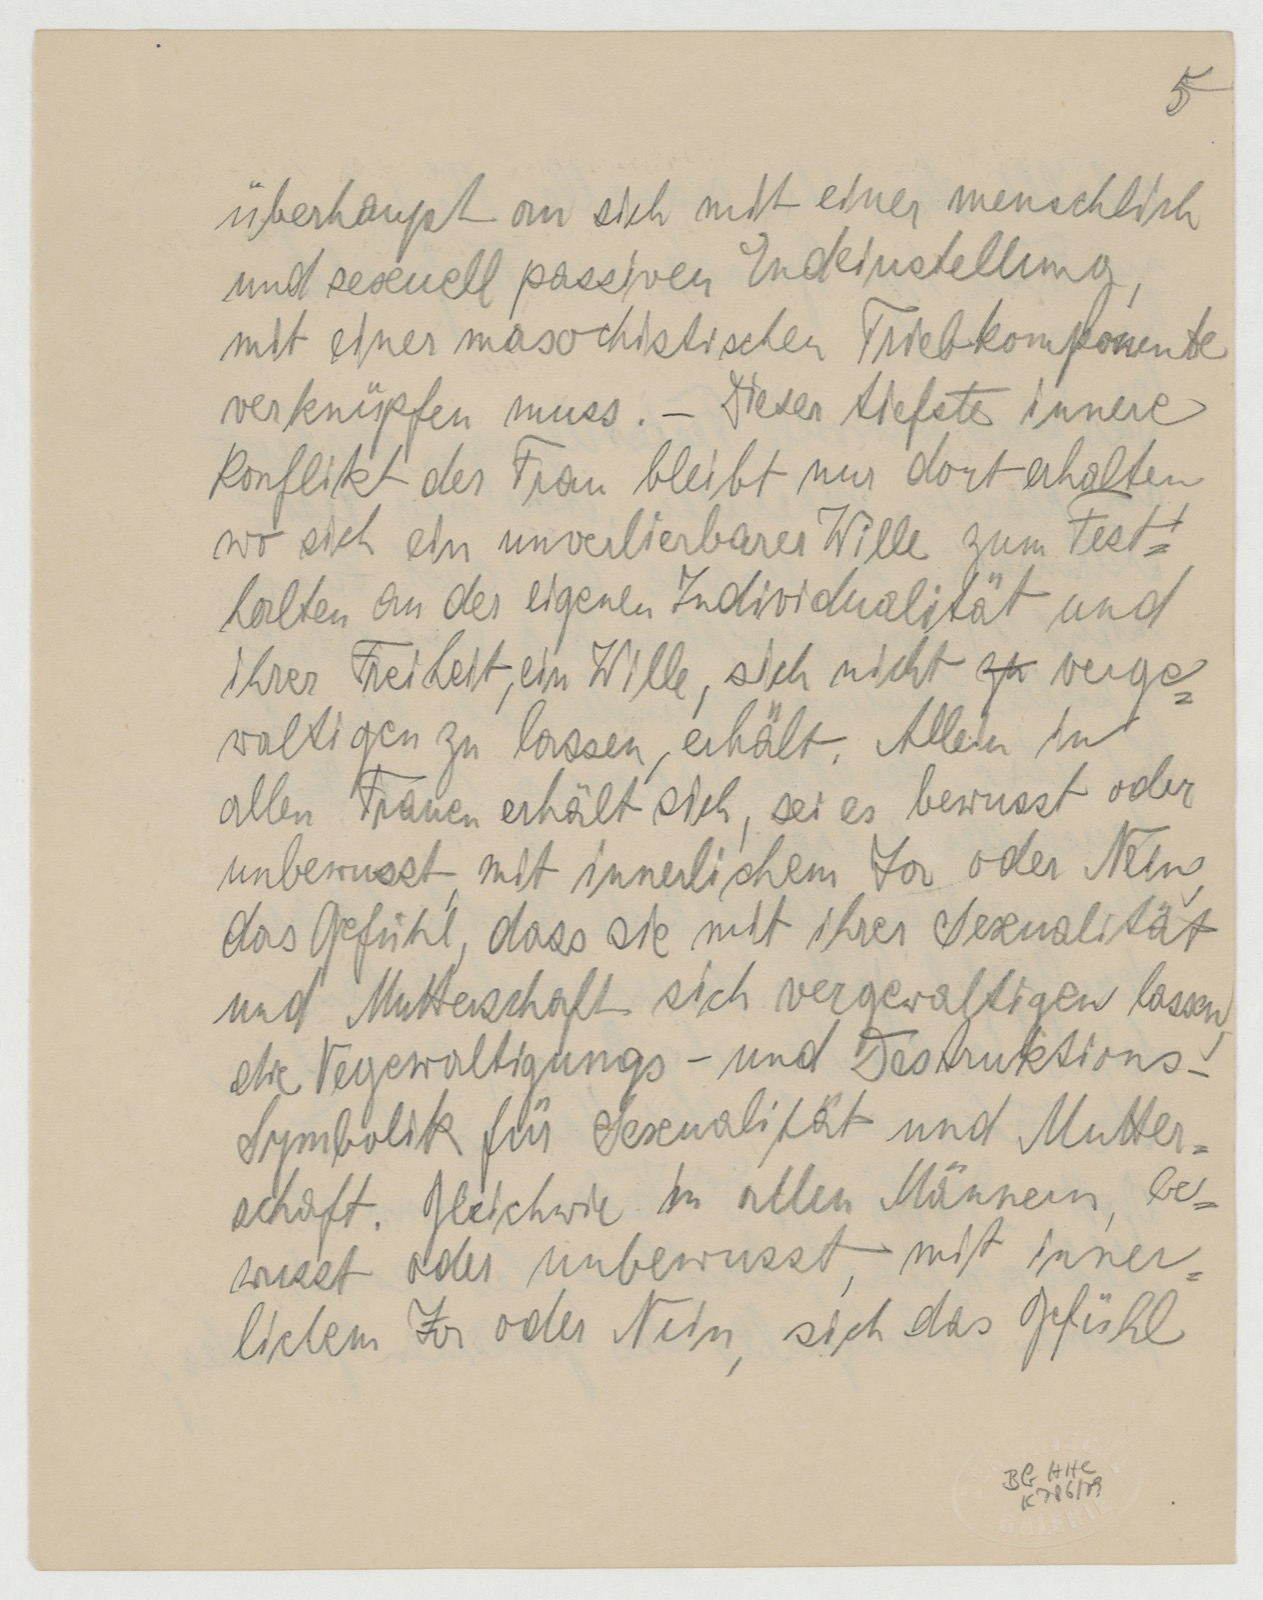 5
überhaupt an sich mit einer menschlich
und sexuell passiven Endeinstellung,
mit einer masochistischen Triebkomponente
verknüpfen muss. – Dieser tiefste innere
Konflikt der Frau bleibt nur dort erhalten
wo sich ein unverlierbarer Wille zum Fest=
halten an der eigenen Individualität und
ihrer Freiheit, ein Wille, sich nicht zu verge=
waltigen zu lassen, erhält. Allein in
allen Frauen erhält sich, sei es bewusst oder
unbewusst, mit innerlichem Ja oder Nein,
das Gefühl, dass sie mit ihrer Sexualität
und Mutterschaft sich vergewaltigen lassen,
die Vegewaltigungs – und Destruktions –
Symbolik für Sexualität und Mutter=
schaft. Gleichwie in allen Männern, be=
wusst oder unbewusst, mit inner=
lichem Ja oder Nein, sich das Gefühl
BG HHC
K 786/79